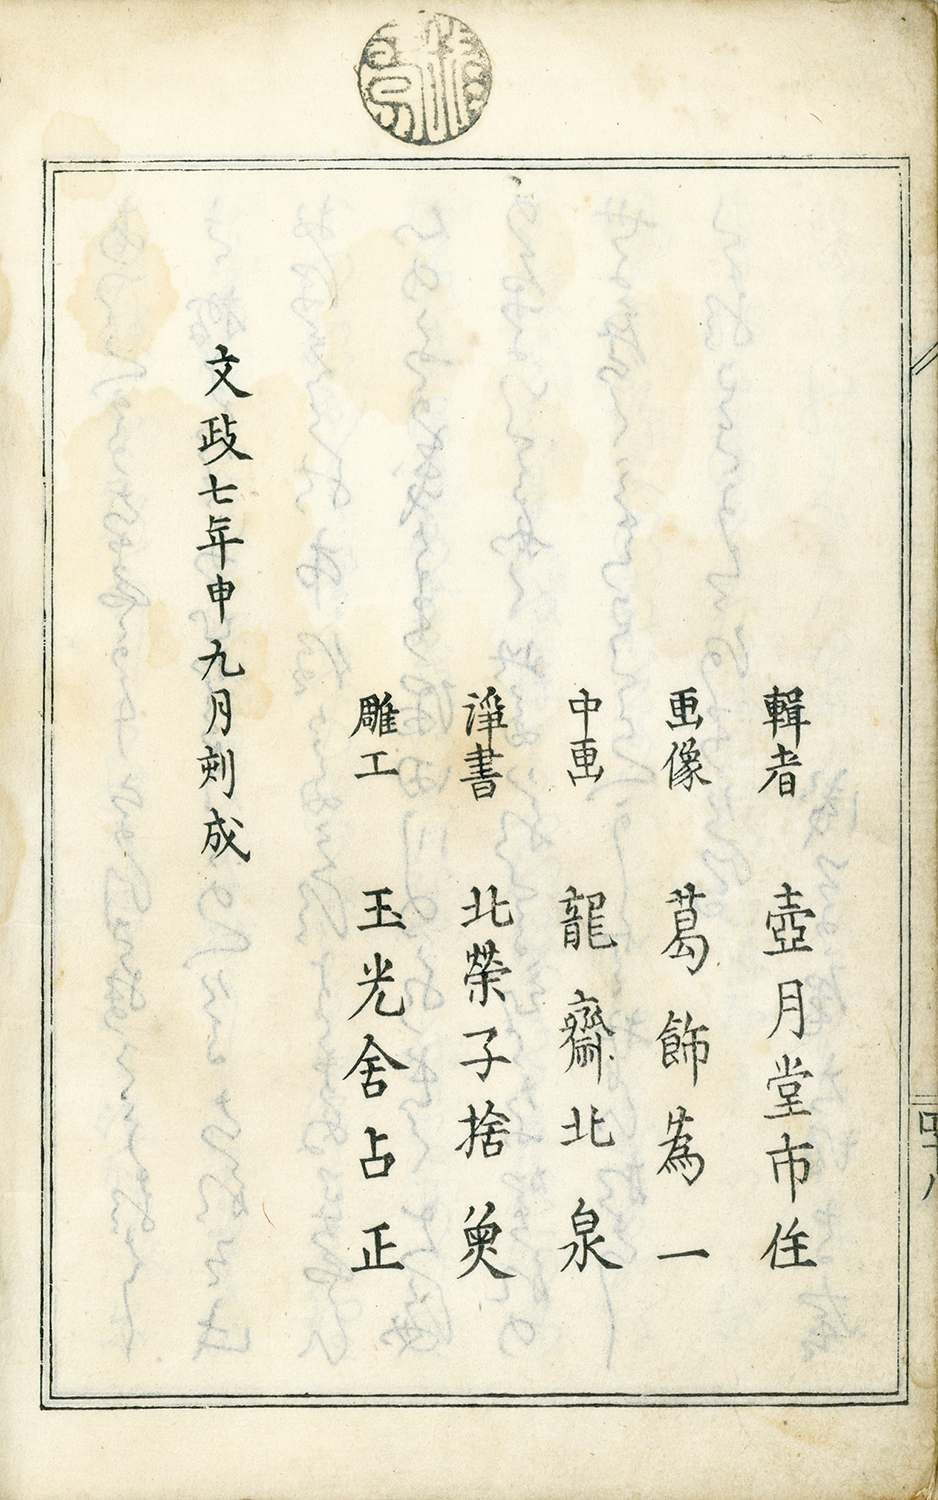 輯者 壺月堂市住
画像 葛飾為一
中画 龍齋北泉
淨書 北榮子捨魚
雕工 玉光舍占正
文政七年申九月刻成
四十八